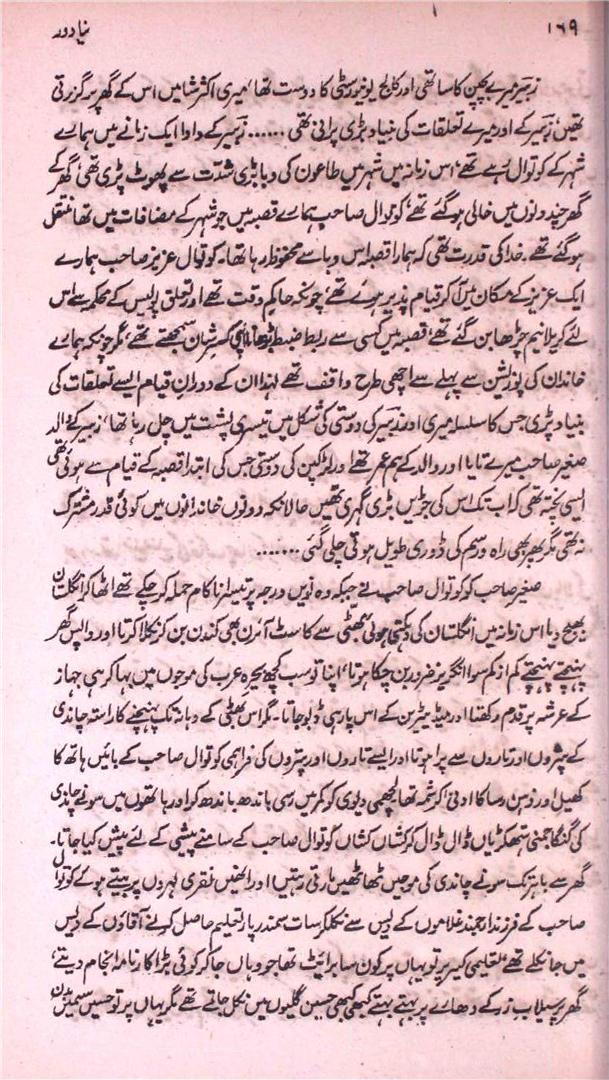 ۱۶۹ نیا دور
زبیر میرے بچپن کا ساتھی اور کالج یونیورسٹی کا دوست تھا، میری اکثر شامیں اس کے گھر پر گزرتی
تھیں، زبیر کے اور میرے تعلقات کی بنیاد بڑی پرانی تھی ...... زبیر کے دادا ایک زمانے میں ہمارے
شہر کے کوتوال رہے تھے، اس زمانہ میں شہر میں طاعون کی وبا بڑی شدت سے پھوٹ پڑی تھی، گھر کے
گھر چند دنوں میں خالی ہو گئے تھے، کوتوال صاحب ہمارے قصبہ میں جو شہر کے مضافات میں تھا منتقل
ہو گئے تھے۔ خدا کی قدرت تھی کہ ہمارا قصبہ اس وبا سے محفوظ رہا تھا۔ کوتوال عزیز صاحب ہمارے
ایک عزیز کے مکان میں آ کر قیام پذیر ہوئے تھے، چونکہ حاکم وقت تھے اور تعلق پولیس کے محکمہ سے اس
لئے کریلا نیم چڑھا بن گئے تھے، قصبہ میں کسی سے ربط ضبط بڑھانا اپنی کسرِ شان سمجھتے تھے، مگر چونکہ ہمارے
خاندان کی پوزیشن سے پہلے سے اچھی طرح واقف تھے لہٰذا ان کے دوران قیام ایسے تعلقات کی
بنیاد پڑی جس کا سلسلہ میری اور زبیر کی دوستی کی شکل میں تیسری پشت میں چل رہا تھا، زبیر کے والد
صغیر صاحب میرے تایا اور والد کے ہم عمر تھے اور لڑکپن کی دوستی جس کی ابتدا قصبہ کے قیام سے ہوئی تھی
ایسی پختہ تھی کہ اب تک اس کی جڑیں بڑی گہری تھیں حالانکہ دونوں خاندانوں میں کوئی قدر مشترک
نہ تھی مگر پھر بھی راہ و رسم کی ڈوری طویل ہوتی چلی گئی ......
صغیر صاحب کو کوتوال صاحب نے جبکہ وہ نویں درجہ پر تیسرا ناکام حملہ کر چکے تھے اٹھا کر انگلستان
بھیج دیا اس زمانہ میں انگلستان کی دہکتی ہوئی بھٹی سے کاسٹ آئرن بھی کندن بن کر نکلا کرتا اور واپس گھر
پہنچتے پہنچتے کم از کم سوا انگریز ضرور بن چکا ہوتا، اپنا تو سب کچھ بحیرہ عرب کی موجوں میں بہا کر ہی جہاز
کے عرشہ پر قدم رکھتا اور میڈیٹیرین کے اس پار ہی ڈبو جاتا۔ مگر اس بھٹی کے دہانہ تک پہنچنے کا راستہ چاندی
کے پتروں اور تاروں سے پر ہوتا اور ایسے تاروں اور پتروں کی فراہمی کوتوال صاحب کے بائیں ہاتھ کا
کھیل اور ذہن رسا کا ادنیٰ کرشمہ تھا، لچھمی دیوی کو کمر میں رسی باندھ باندھ کر اور ہاتھوں میں سونے چاندی
کی گنگا جمنی ہتھکڑیاں ڈال ڈال کر کشاں کشاں کوتوال صاحب کے سامنے پیشی کے لئے پیش کیا جاتا۔
گھر سے باہر تک سونے چاندی کی موجیں ٹھاٹھیں مارتی رہتیں اور انھیں نقری لہروں پر بہتے ہوئے کوتوال
صاحب کے فرزند ارجمند غلاموں کے دیس سے نکلکر سات سمندر پار تعلیم حاصل کرنے آقاؤں کے دیس
میں جا نکلے تھے، تعلیمی کیریر تو یہاں پر کون سا برائیٹ تھا جو وہاں جا کر کوئی بڑا کارنامہ انجام دیتے،
گھر پر سیلاب زر کے دھارے پر بہتے بہتے کبھی کبھی حسین گلیوں میں نکل جاتے تھے مگر یہاں پر تو حسیں سیمیں بدن